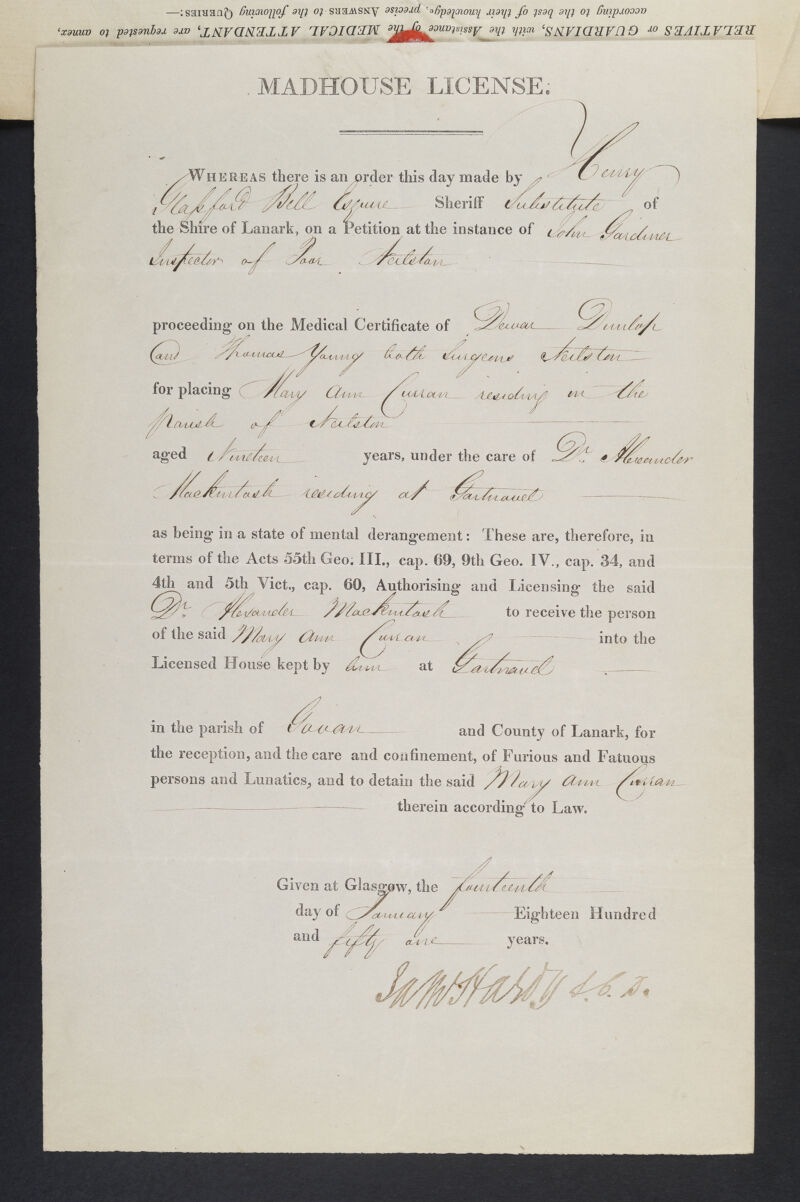 RELATIVES or GUARDIANS, with the Assistance of the MEDICAL ATTENDANT, are requested to annex,
according to the best of their knowledge, precise ANSWERS to the following QUERIES:—
MADHOUSE LICENSE.
WHEREAS there is an order this day made by Henry
Glassford Bell Esquire Sheriff Substitute of
the Shire of Lanark, on a Petition at the instance of John Gardiner
Inspector of Poor Neilston
proceeding on the Medical Certificate of Dewar Dunlop
and Thomas Young both Surgeons Neilston
for placing Mary Ann Curran residing in the
parish of Neilston
aged Nineteen years, under the care of Dr. Alexander
Mackintosh residing at Gartnavel
as being in a state of mental derangement: These are, therefore, in
terms of the Acts 55th Geo. III., cap. 69, 9th Geo. IV., cap. 34, and
4th and 5th Vict., cap. 60, Authorising and Licensing the said
Dr. Alexander Mackintosh to receive the person
of the said Mary Ann Curran into the
Licensed House kept by him at Gartnavel
in the parish of Govan and County of Lanark, for
the reception, and the care and confinement, of Furious and Fatuous
persons and Lunatics, and to detain the said Mary Ann Curran
therein according to Law.
Given at Glasgow, the fourteenth
day of January Eighteen Hundred
and fifty one years.
Hardy